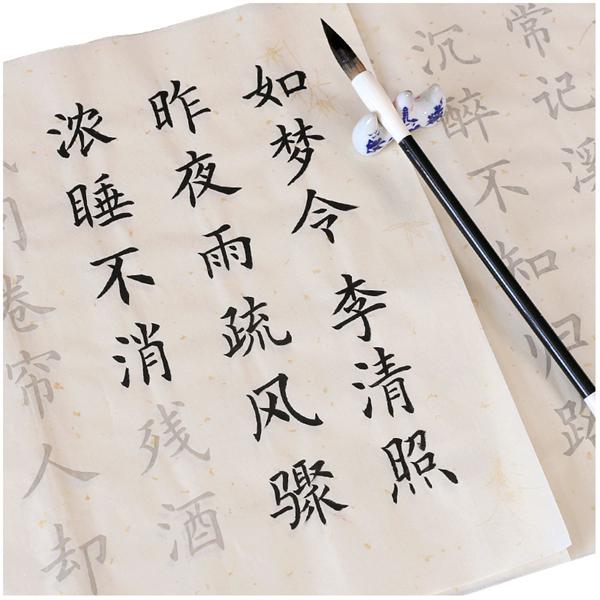 常记溪
沉醉不知归路
如梦令 李清照
昨夜雨疏风骤
浓睡不消残酒
问卷帘人却